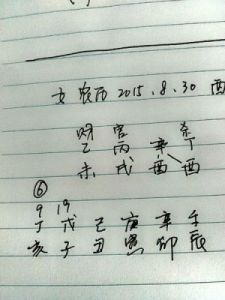 女 农历 2015.8.30 酉
财 官 杀
乙 丙 辛 丁
未 戌 酉 酉
⑥
9 19
丁 戊 己 庚 辛 壬
亥 子 丑 寅 卯 辰